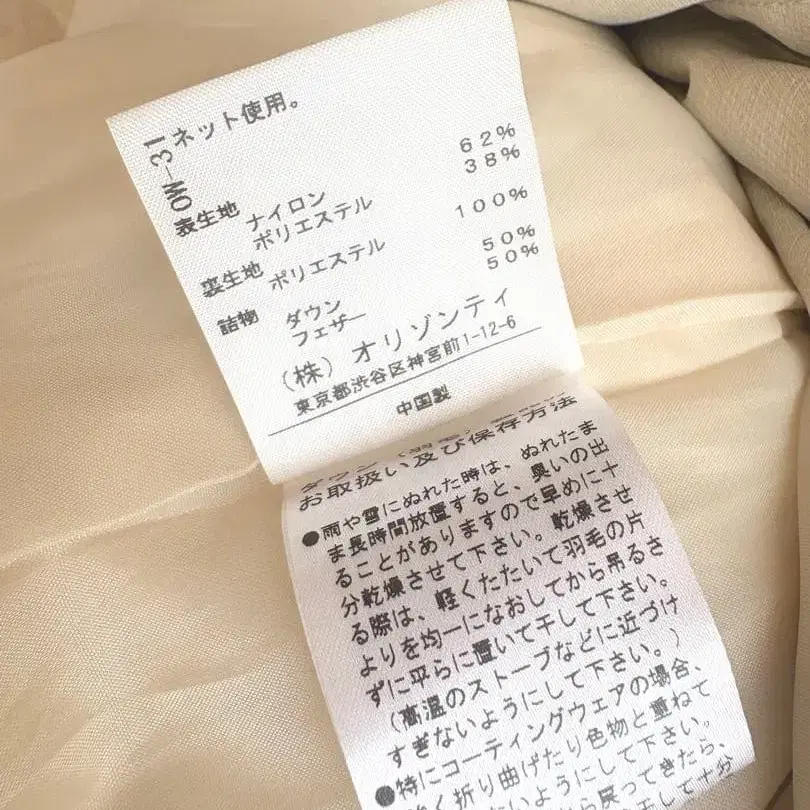 ネット使用。
OW-31
表生地 ナイロン 62%
ポリエステル 38%
裏生地 ポリエステル 100%
詰物 ダウン 50%
フェザー 50%
(株) オリゾンティ
東京都渋谷区神宮前1-12-6
中国製
お取扱い及び保存方法
●雨や雪にぬれた時は、ぬれたま
ま長時間放置すると、臭いの出
ることがありますので早めに十
分乾燥させて下さい。乾燥させ
る際は、軽くたたいて羽毛の片
よりを均一になおしてから吊るさ
ずに平らに置いて干して下さい。
(高温のストーブなどに近づけ
すぎないようにして下さい。)
●特にコーティングウェアの場合、
く折り曲げたり色物と重ねて
ようにして下さい。
戻ってきたら、
して十分